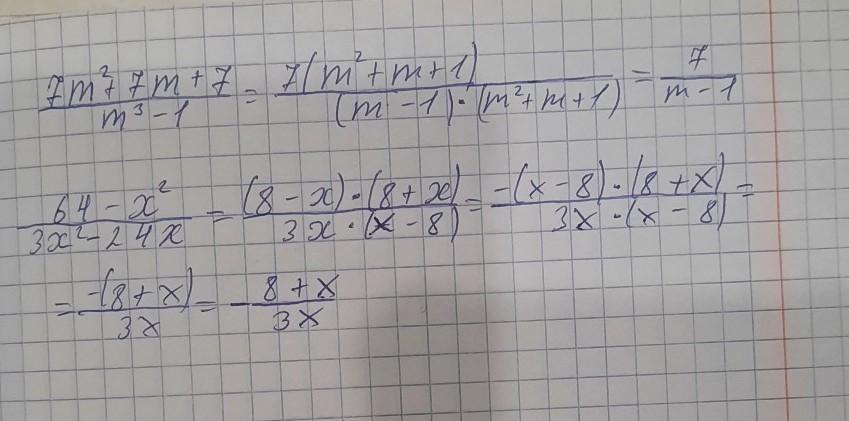 (7m²+7m+7)/(m³-1) = (7(m²+m+1))/((m-1)·(m²+m+1)) = 7/(m-1)
(64-x²)/(3x²-24x) = ((8-x)·(8+x))/(3x·(x-8)) = (-(x-8)·(8+x))/(3x·(x-8)) =
= (-(8+x))/(3x) = -(8+x)/(3x)